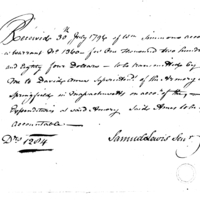 Received 30th July 1794 of Wm Simmons acco
a warrant No 1360 for One thousand two hund
and Eighty four Dollars — to be remitted by
to David Ames Superintdt of the Armory
Springfield in Massachusetts on acct of the
Expenditures at said Armory Said Ames to be
accountable —
Drs 1284
Samuel Lewis Senr